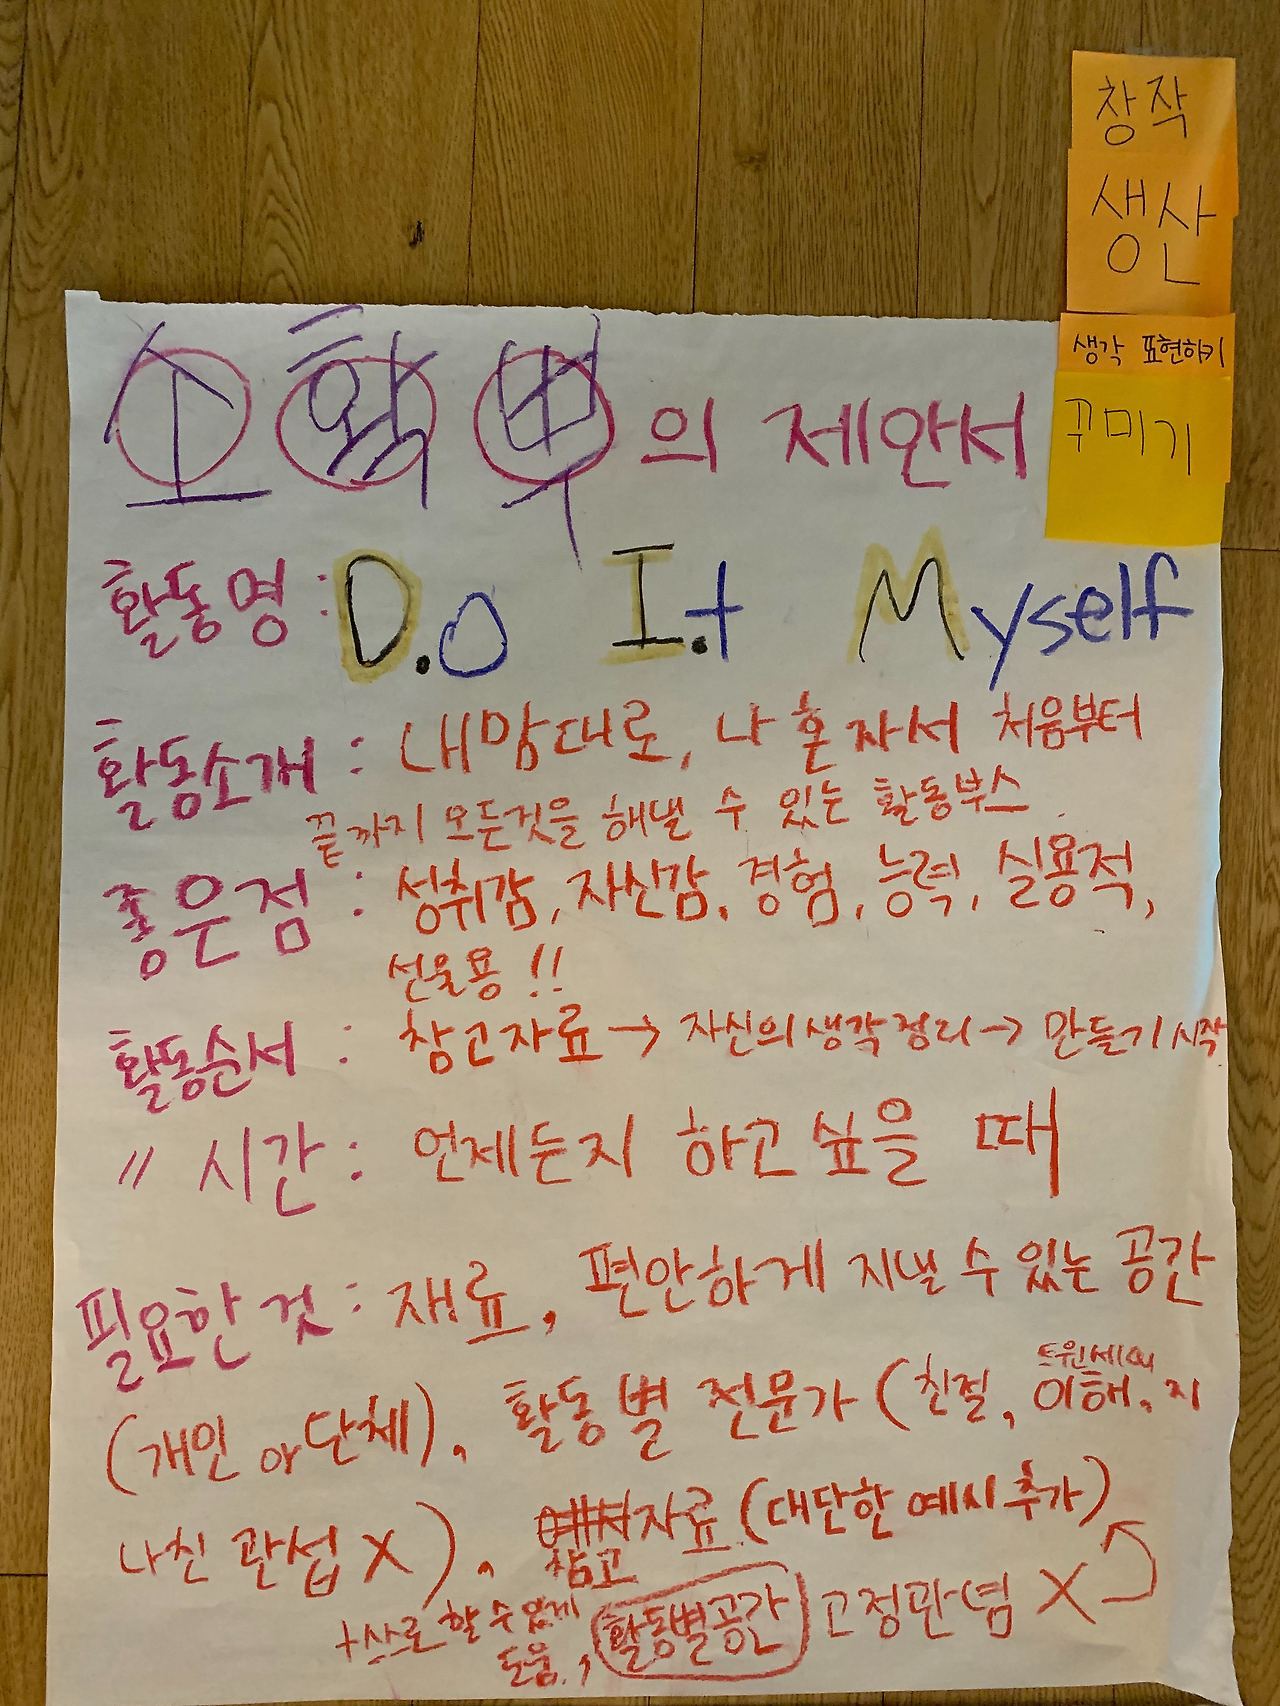 창작
생산
생각 표현하기
꾸미기
소확부의 제안서
활동명 : D.o I.t Myself
활동소개 : 내맘대로, 나 혼자서 처음부터
끝까지 모든것을 해낼 수 있는 활동부스
좋은점 : 성취감, 자신감, 경험, 능력, 실용적,
선물용!!
활동순서 : 참고자료 → 자신의 생각 정리 → 만들기 시작
〃 시간 : 언제든지 하고싶을 때
필요한 것 : 재료, 편안하게 지낼 수 있는 공간
(개인 or 단체), 활동별 전문가 (친절, 이해, 지
나친 관섭 X), 자료 (대단한 예시 추가)
참고
할 수 있게 고정관념 X
도움, 활동별공간